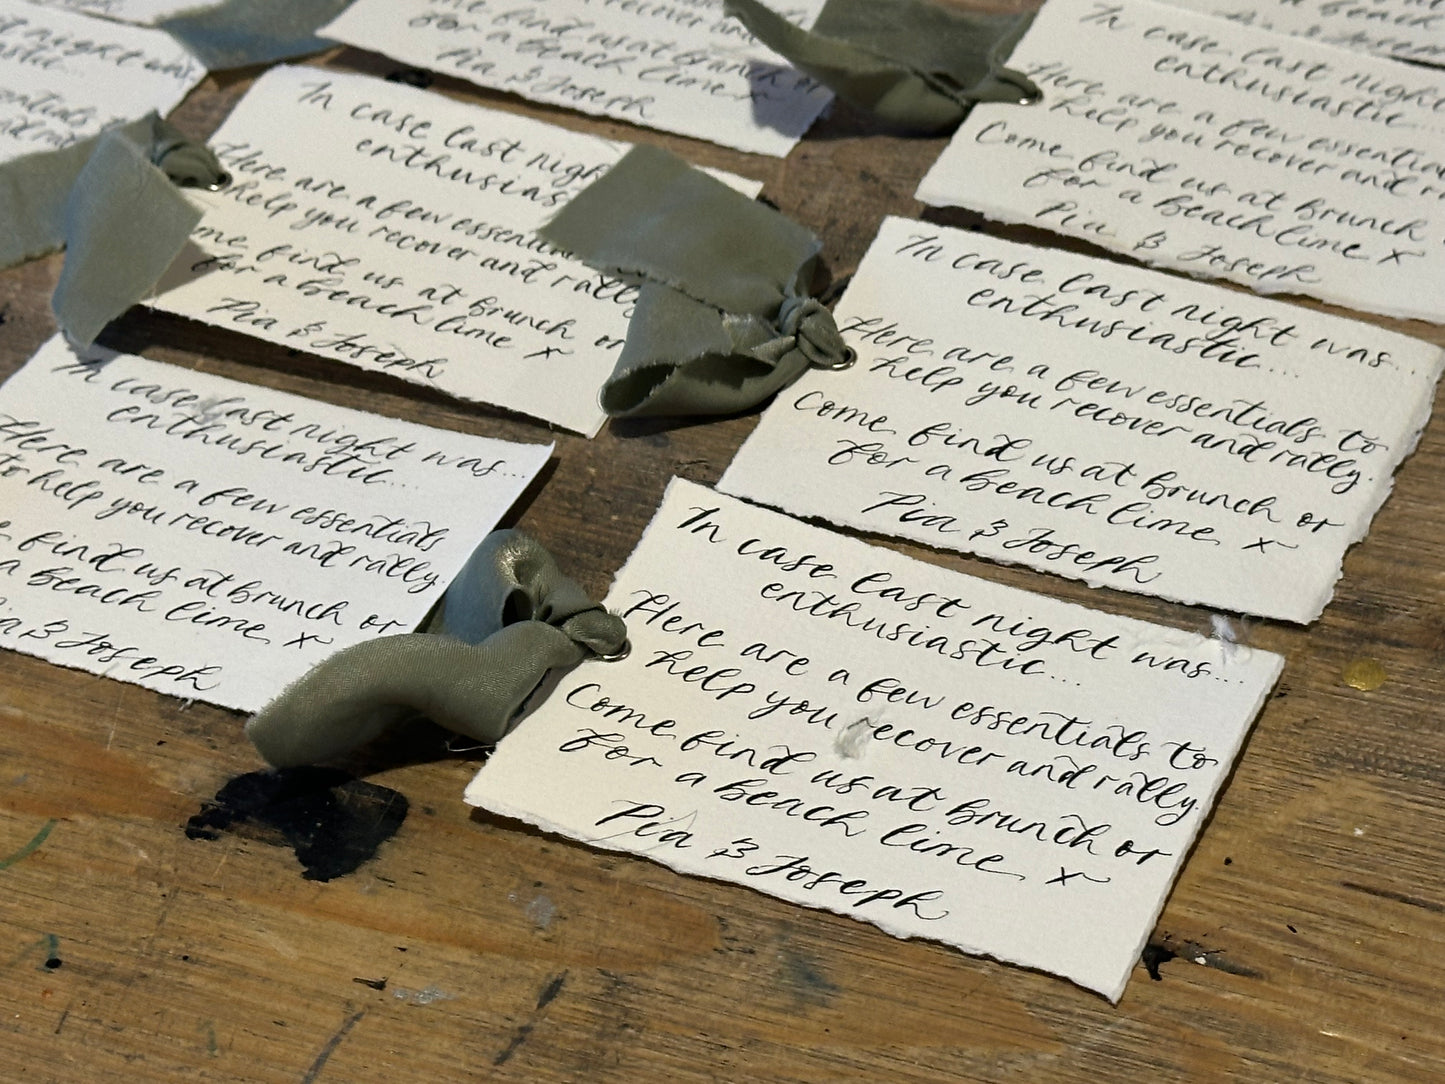 night was
recover and
Come find us at brunch or
for a beach lime x
Pia & Joseph
a beach
Joseph
In case last night
enthusiastic...
Here are a few
help you recover and
Come find us at brunch
for a beach lime x
Pia & Joseph
In case last night
Here are a few
help you recover and rally.
find us at brunch or
for a beach lime x
Pia & Joseph
In case last night was...
enthusiastic...
Here are a few essentials to
help you recover and rally.
Come find us at brunch or
for a beach lime x
Pia & Joseph
In case last night was...
enthusiastic...
Here are a few essentials
to help you recover and rally.
find us at brunch or
a beach lime x
& Joseph
In case last night was...
enthusiastic...
Here are a few essentials to
help you recover and rally.
Come find us at brunch or
for a beach lime x
Pia & Joseph